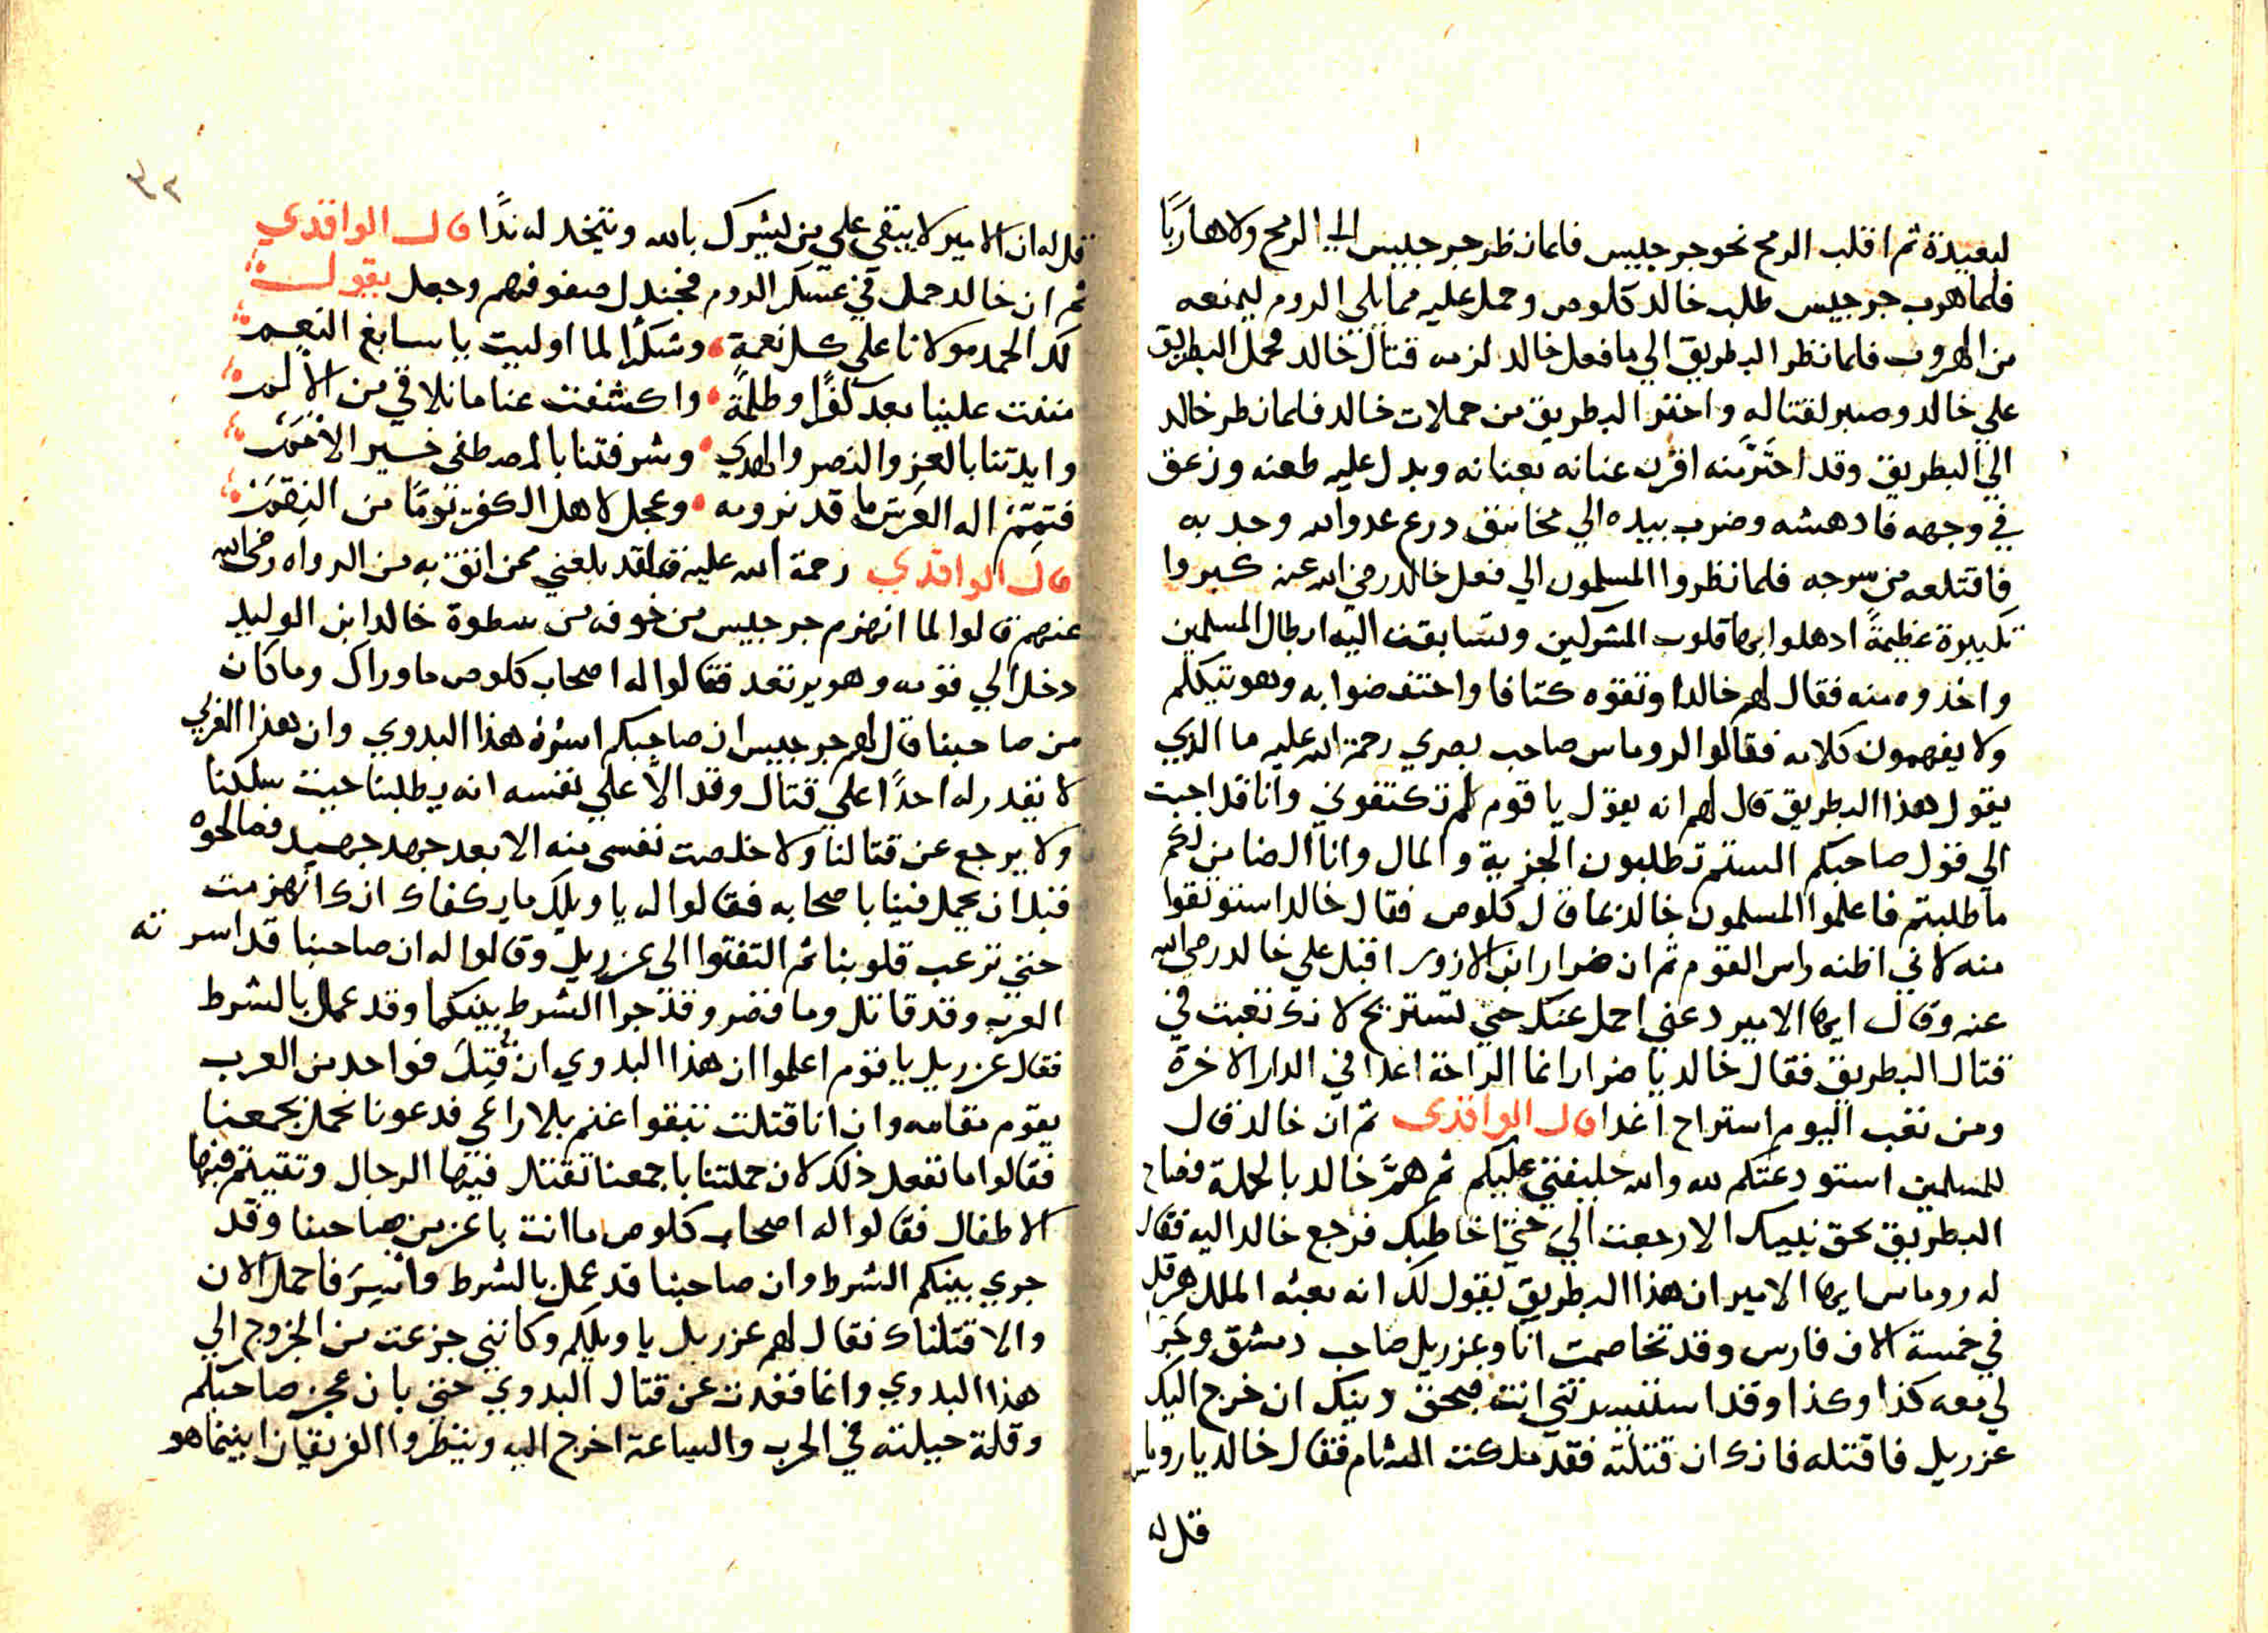 لبعيدة ثم اقلب الرمح نحو جرجيس فلما نظر جرجيس الي الرمح ولا هاربًا
فلما هرب جرجيس طلب خالد كلوص وحمل عليه مما يلي الروم ليمنعه
من الهروب فلما نظر البطريق الي ما فعل خالد لزمه قتال خالد فحمل البطريق
علي خالد وصبر لقتاله واحترز البطريق من حملات خالد فلما نظر خالد
الي البطريق وقد احترز منه اقرن عنانه بعنانه وبدل عليه طعنه وزعق
في وجهه فادهشه وضرب بيده الي مخانق درع عدوالله وجد به
فاقتلعه من سرجه فلما نظروا المسلمون الي فعل خالد رضي الله عنه كبروا
تكبيرة عظيمةً ادهلوا بها قلوب المشركين وتسابقت اليه ابطال المسلمين
واخذوه منه فقال لهم خالد اوثقوه كتافا واحتفضوا به وهو يتكلم
ولا يفهمون كلامه فقالوا لروماس صاحب بصري رحمة الله عليه ما الذي
يقول هذا البطريق قال لهم انه يقول يا قوم لم تكتفوني وانا قد اجبت
الي قول صاحبكم الستم تطلبون الجزية والمال وانا الضامن لكم
ما طلبتم فاعلموا المسلمون خالد بما قال كلوص فقال خالد استوثقوا
منه لاني اظنه راس القوم ثم ان ضرار ابن الازور اقبل علي خالد رضي الله
عنه وقال ايها الامير دعني احمل عنك حتي تستريح لانك تعبت في
قتال البطريق فقال خالد يا ضرار انما الراحة اغدا في الدار الاخرة
ومن تعب اليوم استراح اغدا قال الواقدي ثم ان خالد قال
للمسلمين استودعتكم لله والله خليفتي عليكم ثم همَّ خالد بالحملة فصاح
البطريق بحق نبيك الا رجعت اليَّ حتي اخاطبك فرجع خالد اليه فقال
له روماس ايها الامير ان هذا البطريق يقول لك انه بعثه الملك هرقل
في خمسة الاف فارس وقد تخاصمت انا وعزريل صاحب دمشق وجرا
لي معه كذا وكذا وقد انت فبحق دينك ان خرج اليك
عزريل فاقتله فانك ان قتلته فقد ملكت الشام فقال خالد يا روماس
قل له
٣٢
قل له ان الامير لا يبقي علي من يشرك بالله ويتخد له ندًا قال الواقدي
ثم ان خالد حمل في عسكر الروم فجندل صفوفهم وجعل يقول
لك الحمد مولانا علي كل نعمةٍ وشكرًا لما اوليت يا سابغ النعم
مننت علينا بعد كفرًا وظلمةً واكشفت عنا ما نلاقي من الألم
وايدتنا بالعز والنصر والهدي وشرفتنا بالمصطفي خير الأمم
فتمم اله العرش ما قد نرومه وعجل لاهل الكفر نومًا من النقم
قال الواقدي رحمة الله عليه فلقد بلغني ممن اثق به من الرواه رضي الله
عنهم قالوا لما انهزم جرجيس من خوفه من سطوة خالد ابن الوليد
دخل الي قومه وهو يرتعد فقالوا له اصحاب كلوص ما وراك وما كان
من صاحبنا قال لهم جرجيس ان صاحبكم اسره هذا البدوي وان هذا العربي
لا يقدر له احدًا علي قتال وقد الأ علي نفسه انه يطلبنا حيث سلكنا
ولا يرجع عن قتالنا ولا خلصت نفسي منه الا بعد جهد جهيد فصالحوه
قبل ان يحمل فينا باصحابه فقالوا له يا ويلك ما يكفاك انك انهزمت
حتي ترعب قلوبنا ثم التفتوا الى عزريل وقالوا له ان صاحبنا قد اسرته
العرب وقد قاتل وما قصر وقد جرا الشرط بينكما وقد عمل بالشرط
فقال عزريل يا قوم اعلموا ان هذا البدوي ان قُتِلَ فواحد من العرب
يقوم مقامه وان انا قتلت تبقوا غنم بلا راعي فدعونا نحمل بجمعنا
فقالوا ما نفعل ذلك لان حملتنا باجمعنا تقتل فيها الرجال وتيتم فيها
الاطفال فقالوا له اصحاب كلوص ما انت باعز من صاحبنا وقد
جري بينكم الشرط وان صاحبنا قد عمل بالشرط وأُسِرَ فاحمل الان
والا قتلناك فقال لهم عزريل يا ويلكم وكانني جزعت من الخروج الي
هذا البدوي وانما قعدت عن قتال البدوي حتي بان عجز صاحبكم
وقلة حيلته في الحرب والساعة اخرج اليه وينظروا الفريقان اينما هو